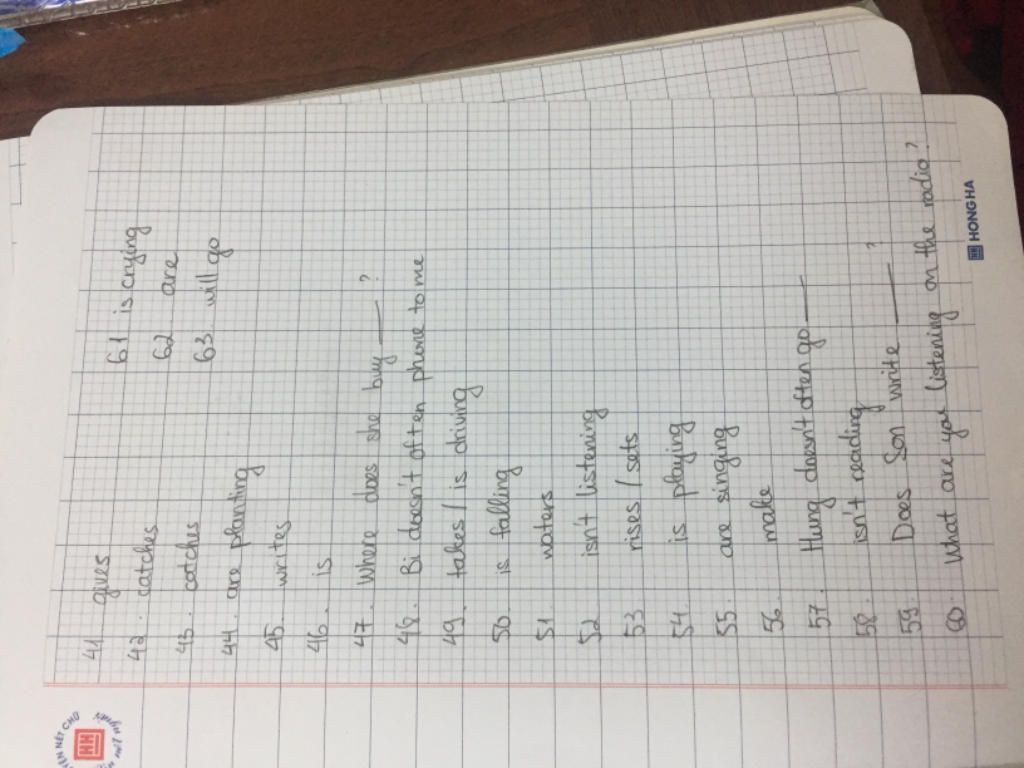 41. gives
42. catches
43. catches
44. are planting
45. writes
46. is
47. Where does she buy ___ ?
48. Bi doesn't often phone to me
49. takes / is driving
50. is falling
51. waters
52. isn't listening
53. rises / sets
54. is playing
55. are singing
56. make
57. Hung doesn't often go ___
58. isn't reading ?
59. Does Son write ___ ?
60. What are you listening on the radio?
61 is crying
62. are
63. will go
HONG HA